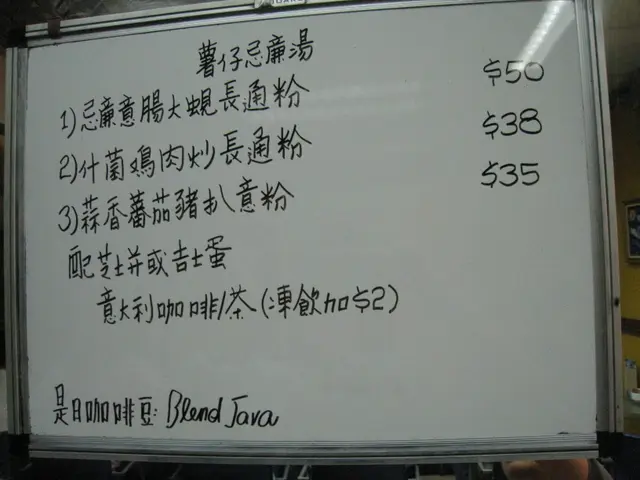 薯仔忌廉湯
1)忌廉意腸大蜆長通粉 $50
2)什菌鳮肉炒長通粉 $38
3)蒜香蕃茄豬扒意粉 $35
配芝士并或吉士蛋
意大利咖啡/茶(凍飲加$2)
是日咖啡豆: Blend Java